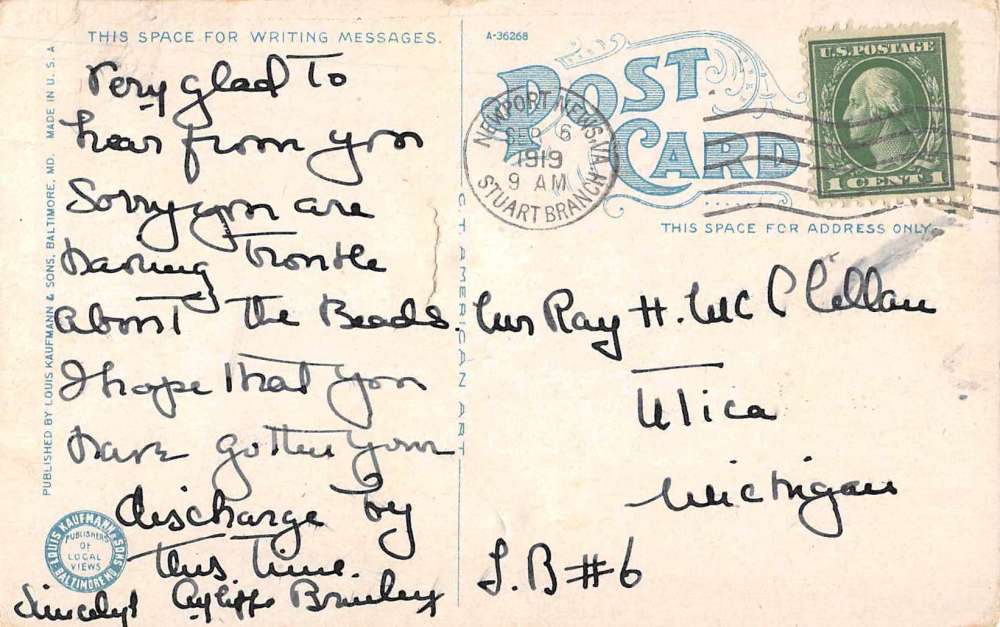 THIS SPACE FOR WRITING MESSAGES.
Very glad To
hear from you
Sorry you are
Having Trouble
About The Beads.
I hope That you
Have gotten your
discharge by
this time.
Sincely
PUBLISHED BY LOUIS KAUFMANN & SONS, BALTIMORE, MD. MADE IN U. S. A
LOUIS KAUFMANN & SONS
PUBLISHERS
OF
LOCAL
VIEWS
BALTIMORE MD.
A-36268
POST
CARD
NEWPORT NEWS, VA.
SEP 6
1919
9 AM
STUART BRANCH
U.S. POSTAGE
1 CENT 1
THIS SPACE FOR ADDRESS ONLY.
CT AMERICAN ART
Mrs Ray H. McClellan
Utica
Michigan
L.B #6